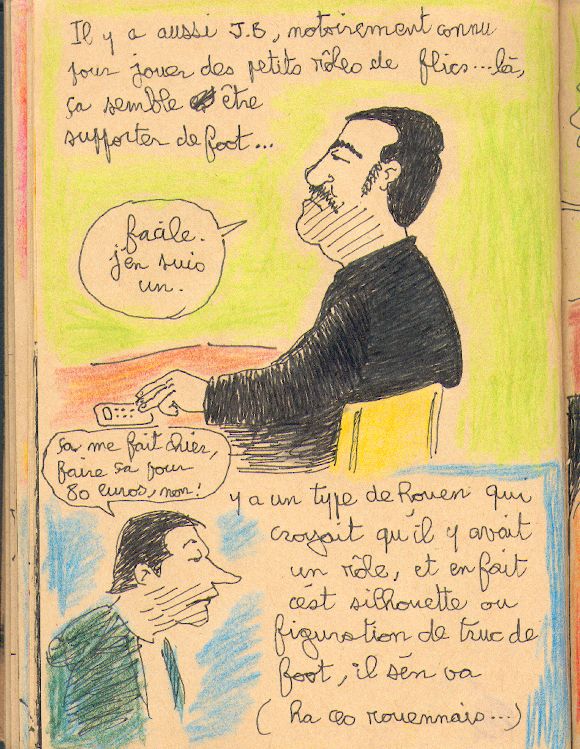 Il y a aussi J.B, notoirement connu
pour jouer des petits rôles de flics...là,
ça semble être
supporter de foot...
facile.
j'en suis
un.
ça me fait chier,
faire ça pour
80 euros, non!
y a un type de Rouen qui
croyait qu'il y avait
un rôle, et en fait
c'est silhouette ou
figuration de truc de
foot, il s'en va
(ha ces rouennais...)